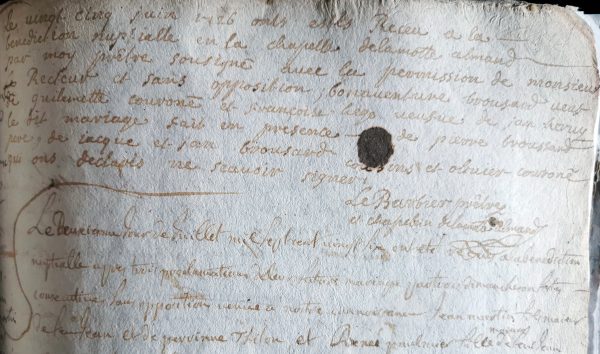 le vingt cinq juin 1726 onts estés Receu a la
benediction nuptialle en la chapelle delamotte almand
par moy prêtre sousigné avec la permission de monsieur
le Recteur et sans opposition, bonaventure brousard veuf
de guilemette couroné et françoise veusue de jan
le dit mariage fait en presence de pierre broussard
pere, de jacque et jan brousard et olivier couroné
qui ons declarés ne scavoir signer,
Le Barbier prêtre
et chapelain delamotte almand
Le deuxieme jour de Juillet mil sept cent vingt six ont été Receus a la benediction
nuptialle apres trois proclamations de leur futur mariage par trois dimanches
consecutives sans opposition venue a notre connoissance Jean martin
de Jean et de perrinne Thilon et fille de